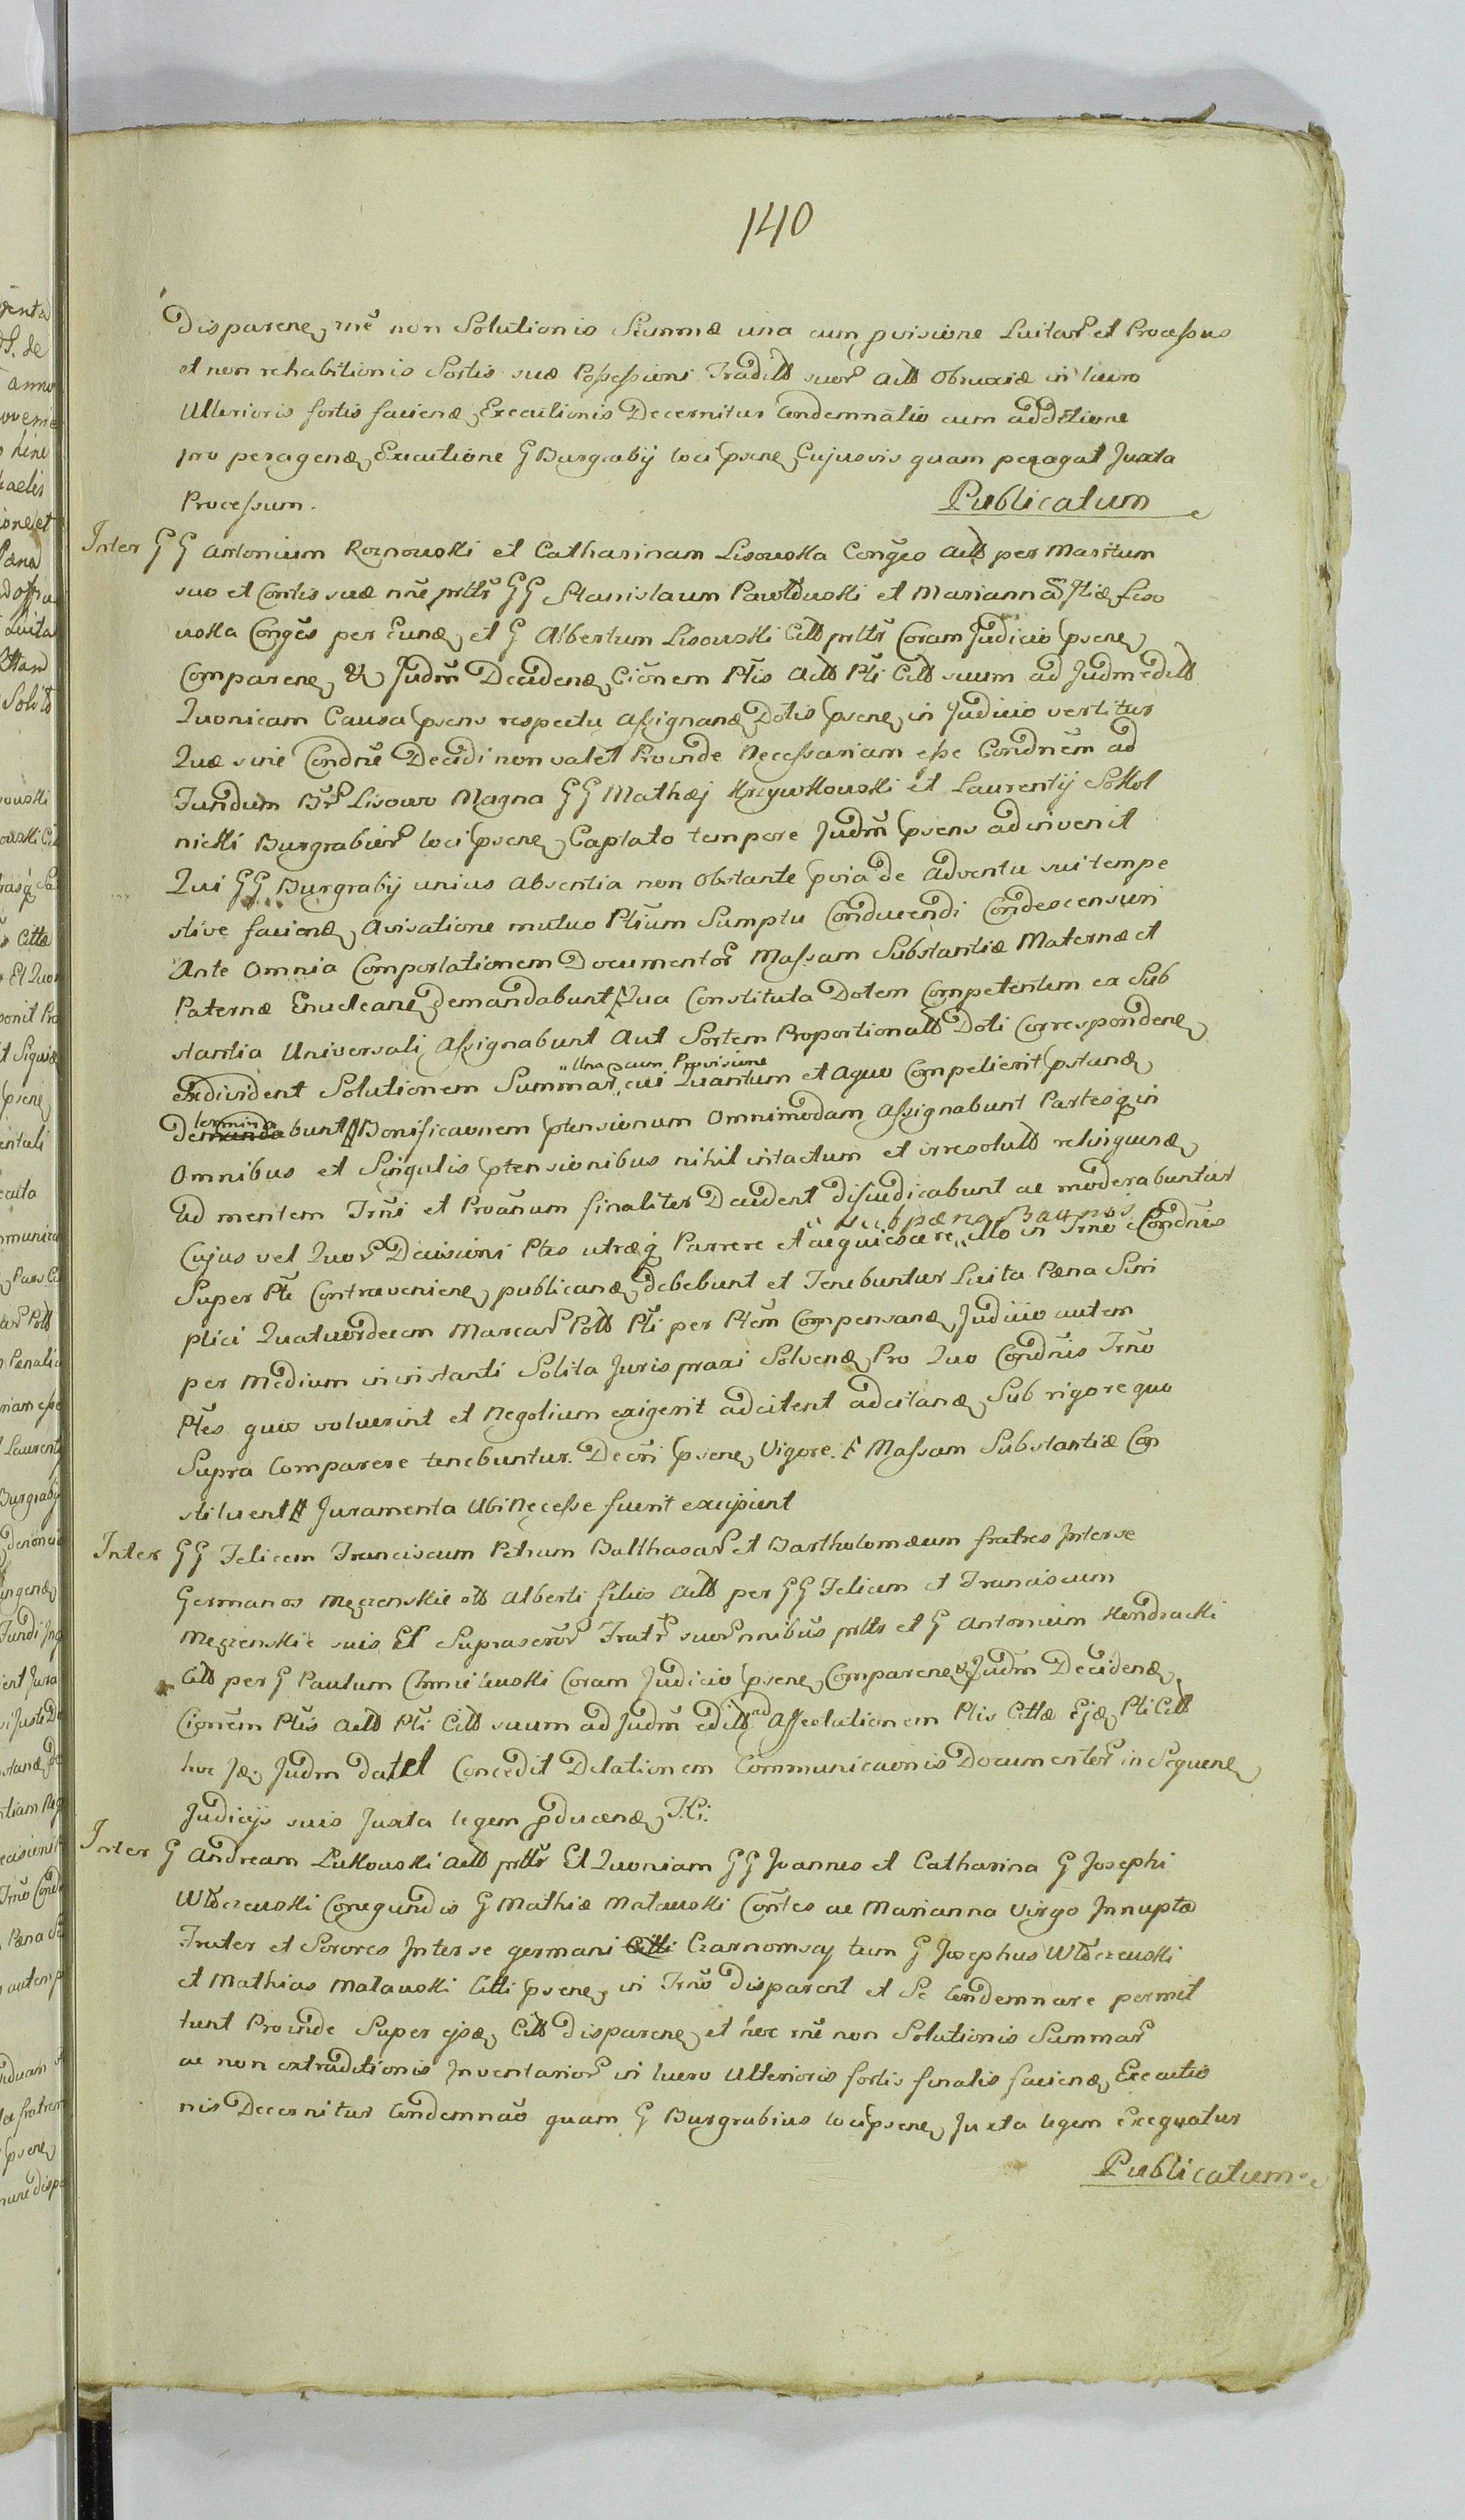 140
disparene, rnē non Solutionis Summæ una cum pvisione Luitar et Processus
et non rehabitionis Sortis suæ Possessioni Tradit suor act Obnoxiæ in lucro
Ulterioris fortis faciend Executionis Decernitur Condemnatio cum additione
pro peragend Executione G Burgrabij loci psene Cujusvis quam peragat Juxta
Processum.
Publicatum
Inter G G Antonium Roznowski et Catharinam Lisowska Conges Act per Maritum
suo et Contis suæ nne prltr GG Stanislaum Pawłowski et Mariannã Liso
wska Conges per Eund et G Albertum Lisowski Citt prltr Coram Judicio psene
Comparene & Judm Decidend Cionem Ptis Act Pti Citt suum ad Judm edit
Quonieam Causa psens respectu assignand Dotis psene in Judicio vertitur
Quæ sine Condne Decidi non valet Proinde Necessariam esse Condnem ad
Fundum Br Lisowo Magna GG Mathæj Krzywkowski et Laurentij Sokol
nicki Burgrabior loci psene Captato tempore Judm psens adinvenit
Qui GG Burgrabij unius absentia non Obstante pvia de adventu sui tempe
stive faciend Avisatione mutuo Ptium Sumptu Conducendi Condescensuri
Ante Omnia Comportationem Documentor Massam Substantiæ Maternæ et
Paternæ Enucleare demandabunt Qua Constituta Dotem Competentem ex Sub
stantia Universali Assignabunt Aut Sortem Proportionalt Doti Correspondene
exdivident Solutionem Summar „Una cum Provisione„ cui Quantum et a quo Compelierit pstand
Determinabunt Bonificaonem ptensionum Omnimodam Assignabunt Partesq in
Omnibus et Singulis ptensionibus nihil intactum et irresolutt relinquend
ad mentem Trni et Proanum finaliter Decident disjudicabunt ac moderabuntur
Cujus vel Quor Decisioni Ptes utræq Parrere et acquiescere „sub pæna Bannos„ illo in Trno Condnis
Super Pte Contraveniene publicand debebunt et Tenebuntur Luita Pæna Sim
plici Quatuordecem Marcar Poll Pti per Ptem Compensand Judicio autem
per Medium in instanti Solita Juris praxi Solvend Pro Quo Condnis Trno
Ptes quos voluerint et Negotium exigerit adcitent adcitand Sub rigore quo
Supra Comparere tenebuntur. Decri psene Vigore. Massam Substantiæ Con
stituent Juramenta Ubi Necesse fuerit excipient
Inter GG Felicem Franciscum Petrum Balthasar et Bartholomæum fratres Inter se
Germanos Męzenskie olt Alberti filios Act per GG Felicem et Franciscum
Męzenskie suis Et Suprascror Fratr suor nnibus prltr et G Antonium Kendracki
Citt per G Paulum Chmielewski Coram Judicio psene Comparene & Judm Decidend
Cionem Ptis Act Pti Citt suum ad Judm edit ad Affectationem Ptis Cittæ Ejd Pti Citt
hoc Id Judm dat et Concedit Delationem Communicaonis Documentor in Sequene
Judicijs suis Juxta legem pducend T.Ci:
Inter G Andream Lukowski Act prltr Et Quoniam GG Joannes et Catharina G Josephi
Włoczewski Conegundis G Mathiæ Matawski Contes ac Marianna Virgo Innupta
Frater et Sorores Inter se germani Czarnomscy tum G Josephus Włoczewski
et Mathias Matawski Citti psene in Trno disparent et Se Condemnare permit
tunt Proinde Super ejsd Citt disparene et hoc rne non Solutionis Summar
ac non extraditionis Inventarior in lucro Ulterioris fortis finalis faciend Executio
nis Decernitur Condemnao quam G Burgrabius loci psene Juxta legem Exequatur
Publicatum